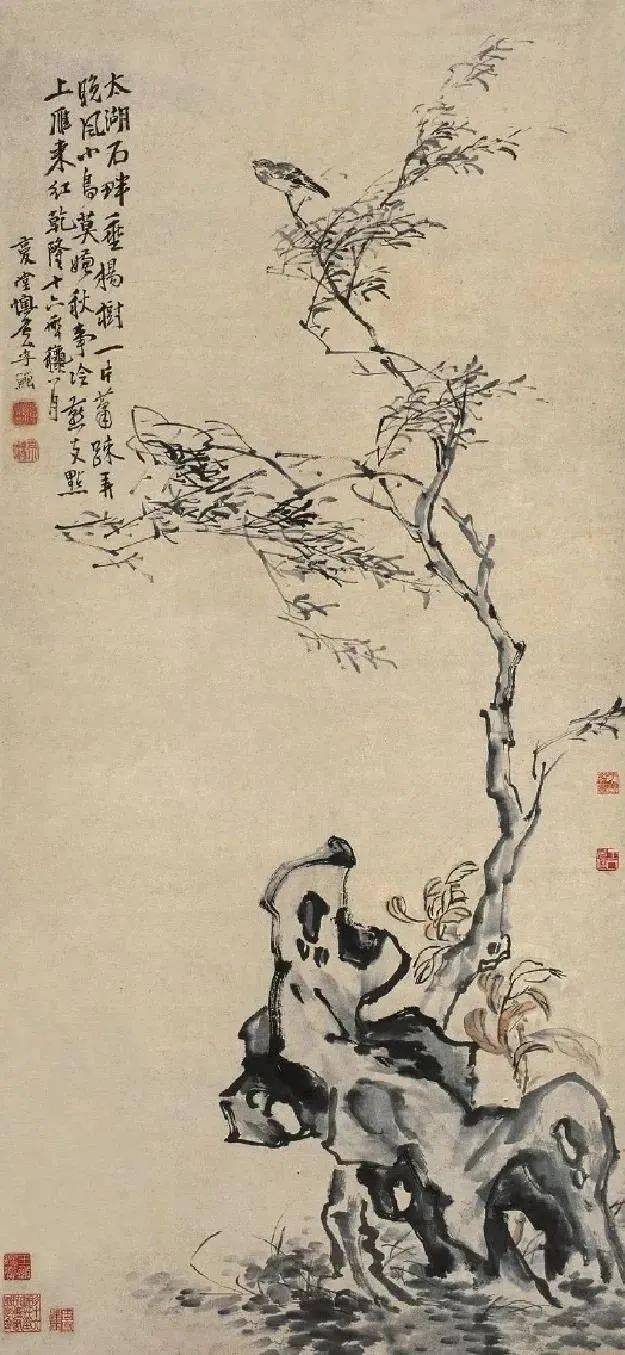 太湖石畔垂楊樹一片蕭疎弄
晚風小鳥莫嫌秋事冷燕支點
上雁來紅乾隆十六年穐八月
复堂懊道人李鱓